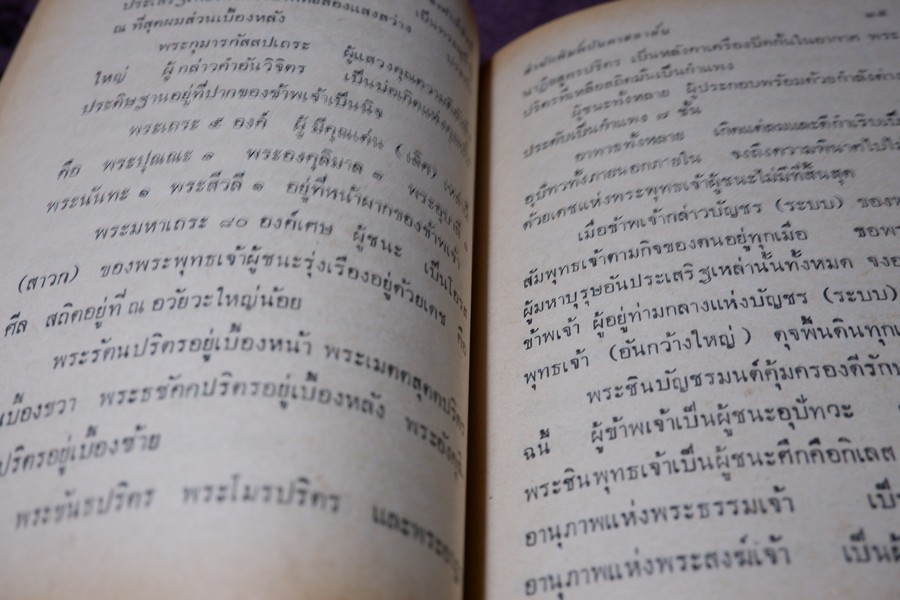 ณ ที่สุดผมส่วนเบื้องหลัง
พระกุมารกัสสปเถระ ผู้แสวงคุณความ
ใหญ่ ผู้กล่าวคำอันวิจิตร เป็นบ่อเกิดแห่งคุณ
ประดิษฐานอยู่ที่ปากของข้าพเจ้าเป็นนิจ
พระเถระ ๕ องค์ ผู้มีคุณเด่น (เลิศ)
คือ พระปุณณะ ๑ พระองคุลิมาล ๑ พระอุบาลี ๑
พระนันทะ ๑ พระสีวลี ๑ อยู่ที่หน้าผากของข้าพเจ้า
พระมหาเถระ ๘๐ องค์เศษ ผู้ชนะ เป็นโอรส
(สาวก) ของพระพุทธเจ้าผู้ชนะรุ่งเรืองอยู่ด้วยเดช คือ
ศีล สถิตอยู่ที่ ณ อวัยวะใหญ่น้อย
พระรัตนปริตรอยู่เบื้องหน้า พระเมตตสุตตปริตร
เบื้องขวา พระธชัคคปริตรอยู่เบื้องหลัง
ปริตรอยู่เบื้องซ้าย
พระขันธปริตร พระโมรปริตร และพระ
๒๕
นาฏิยสูตรปริตร เป็นหลังคาเครื่องปิดกั้นในอากาศ พระ
ปริตรที่เหลือสถิตมั่นเป็นกำแพง
ผู้ชนะทั้งหลาย ผู้ประกอบพร้อมด้วยกำลังต่าง
ประดับเป็นกำแพง ๗ ชั้น
อาพาธทั้งหลาย เกิดแต่ลมและดีกำเริบเป็น
อุปัทวทั้งภายนอกภายใน จงถึงความพินาศไปไม่
ด้วยเดชแห่งพระพุทธเจ้าผู้ชนะไม่มีที่สิ้นสุด
เมื่อข้าพเจ้ากล่าวบัญชร (ระบบ) ของพ
สัมพุทธเจ้าตามกิจของตนอยู่ทุกเมื่อ ขอพร
ผู้มหาบุรุษอันประเสริฐเหล่านั้นทั้งหมด จงอ
ข้าพเจ้า ผู้อยู่ท่ามกลางแห่งบัญชร (ระบบ)
พุทธเจ้า (อันกว้างใหญ่) ดุจพื้นดินทุก
พระชินบัญชรมนต์คุ้มครองดีรัก
ฉนี้ ผู้ข้าพเจ้าเป็นผู้ชนะอุปัทวะ ด้
พระชินพุทธเจ้าเป็นผู้ชนะศึกคือกิเลส
อานุภาพแห่งพระธรรมเจ้า เป็
อานุภาพแห่งพระสงฆ์เจ้า เป็นผ